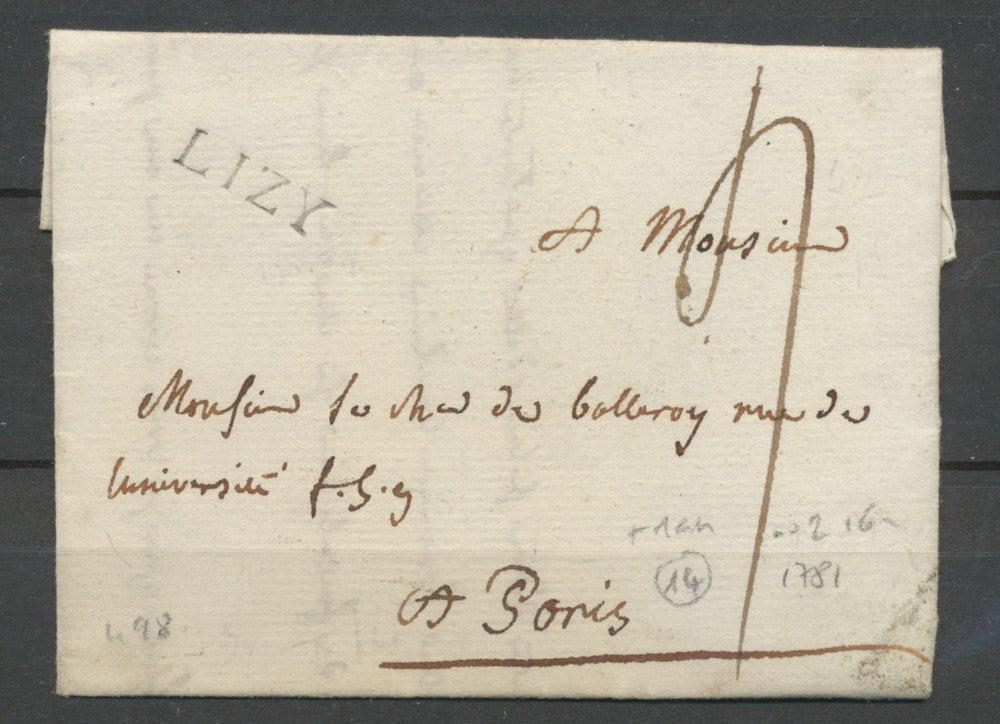 LIZY
A Monsieur
Monsieur le cher de balleroy rue de
luniversité f. S. g
A Paris
14
1781